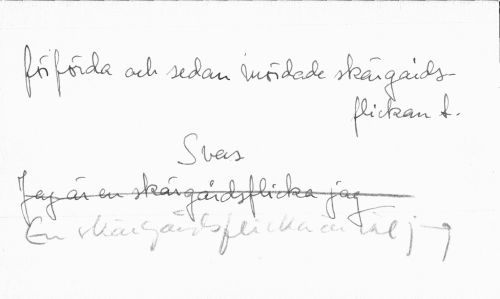 förförda och sedan mördade skärgårds-
flickan t.
Svar
Jag är en skärgårdsflicka jag
En skärgårdsflicka är väl jag